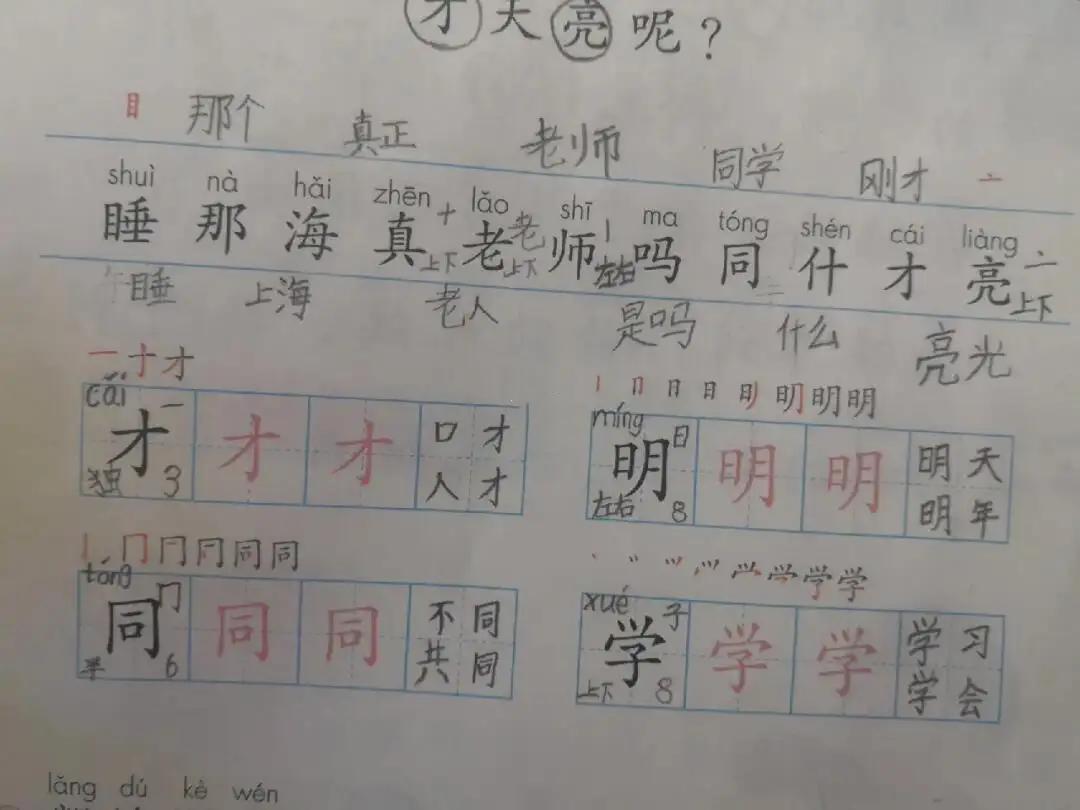 才天亮呢？
目 那个 真正 老师 同学 刚才 亠
shuì nà hǎi zhēn lǎo shī ma tóng shén cái liàng
睡 那 海 真 十 上下 老 耂 上下 师 丨 左右 吗 同 什 才 亮 亠 上下
午睡 上海 老人 是吗 什么 亮光
一 十 才
丨 冂 日 日 明 明 明 明
cái 才 一 独 3 才 才 口才 人才
míng 明 日 左右 8 明 明 明天 明年
丨 冂 冂 同 同 同
tóng 同 冂 半 6 同 同 不同 共同
xué 学 子 上下 8 学 学 学习 学会
lǎng dú kè wén